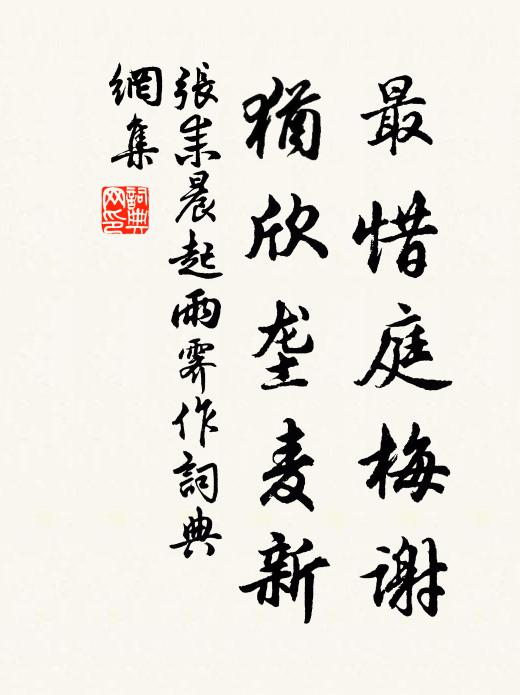 最惜庭梅谢
犹欣垄麦新
張耒晨起雨霽作詞典
網集
詞典
网印